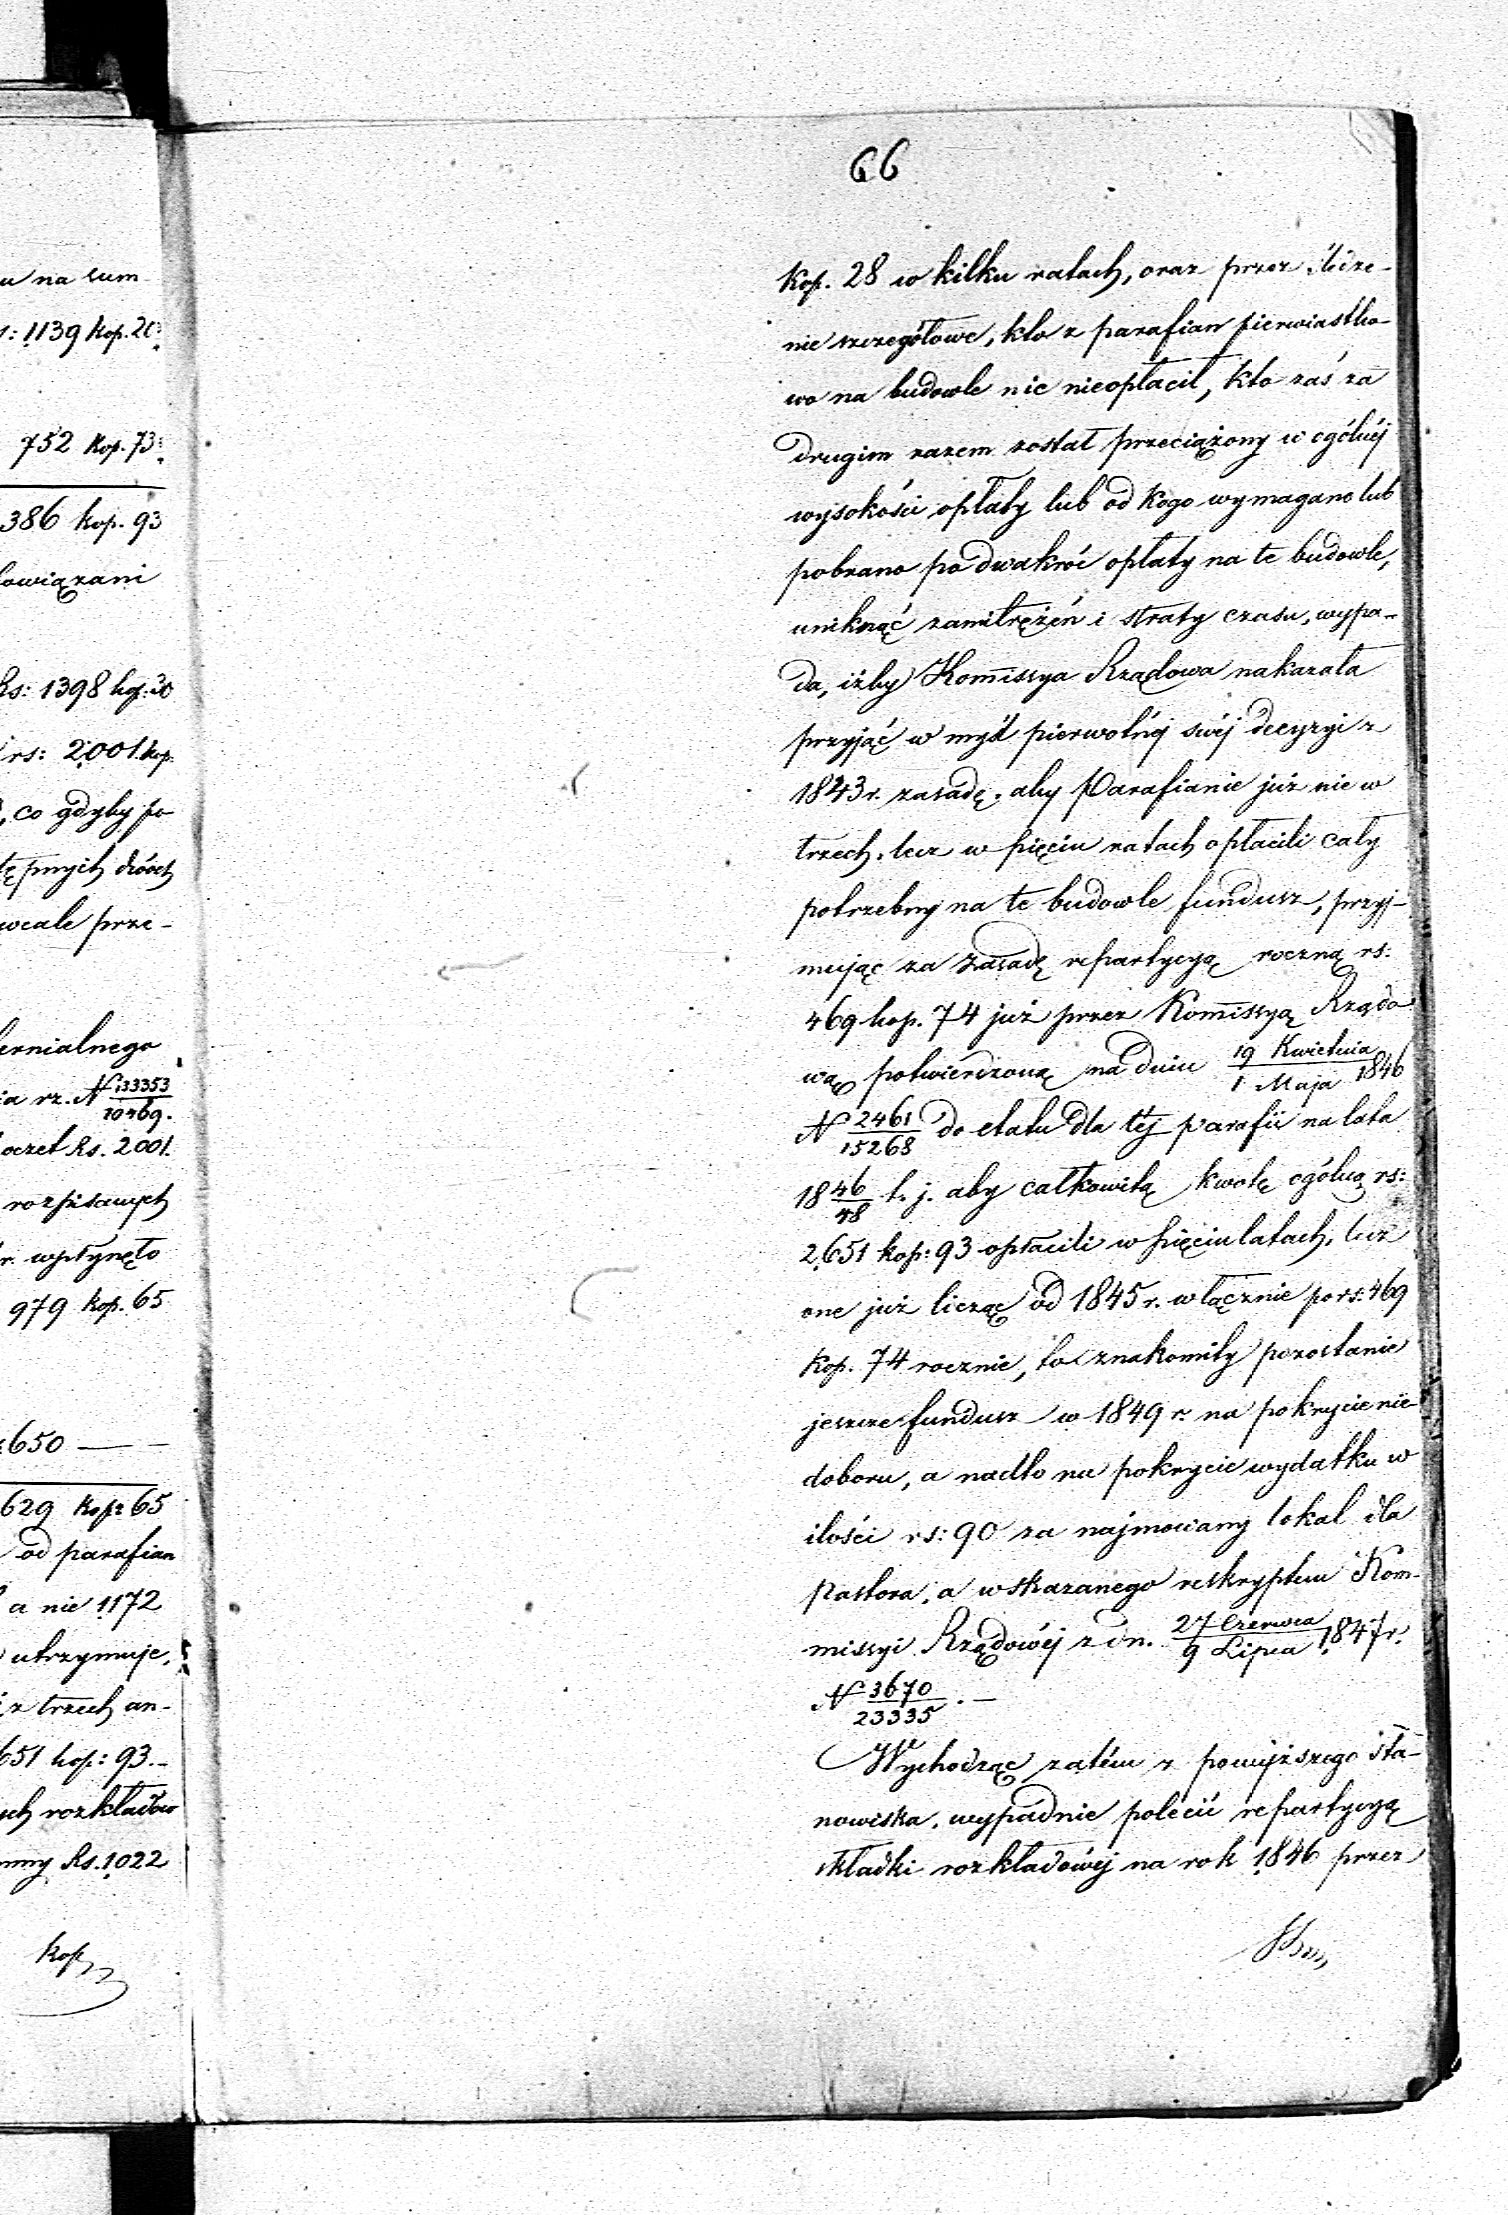 u na sum
s: 1139 kop. 20
752 kop. 73
386 kop. 93
owiązani
Rs: 1398 kop: 30
rs: 2001 kop
, co gdyby po
tępnych dwóch
wcale prze-
ernialnego
ia rz. N 33353/10469.
oczet Rs. 2001.
rozpisanych
r. wpłynęło
979 kop. 65
650 — —
629 kop: 65
od parafian
a nie 1172
utrzymuje,
z trzech an-
651 kop: 93.-
ch rozkładów
mmy Rs. 1022
kop
66
kop. 28 w kilku ratach, oraz przez
nie szczegółowe, kto z parafian pierwiastko-
wo na budowle nic nieopłacił, kto zaś za
drugim razem został przeciążony w ogólnéj
wysokości opłaty lub od kogo wymagano lub
pobrano po dwakroć opłaty na te budowle,
uniknąć zamitrężeń i straty czasu, wypa-
da, iżby Kommissya Rządowa nakazała
przyjąć w myśl pierwotnéj swéj decyzyi z
1843 r. zasadę, aby Parafianie już nie w
trzech, lecz w pięciu ratach opłacili cały
potrzebny na te budowle fundusz, przyj-
mując za zasadę repartycyą roczną rs:
469 kop. 74 już przez Kommissyą Rządo
wą potwierdzoną na dniu 19 Kwietnia/1 Maja 1846
N 2461/15268 do etatu dla téj parafii na lata
1846/48 t. j. aby całkowitą kwotę ogólną rs:
2651 kop: 93 opłacili w pięciu latach, lecz
one już licząc od 1845 r. włącznie po rs: 469
kop. 74 rocznie, to znakomity pozostanie
jeszcze fundusz w 1849 r. na pokrycie nie-
doboru, a nadto na pokrycie wydatku w
ilości rs: 90 za najmowany lokal dla
Pastora, a wskazanego reskryptem Kom-
missyi Rządowéj z dn. 27 Czerwca/9 Lipca 1847 r.
N 3670/23335 . —
Wychodząc zatém z powyższego sta-
nowiska, wypadnie polecić repartycyą
składki rozkładowéj na rok 1846 przez